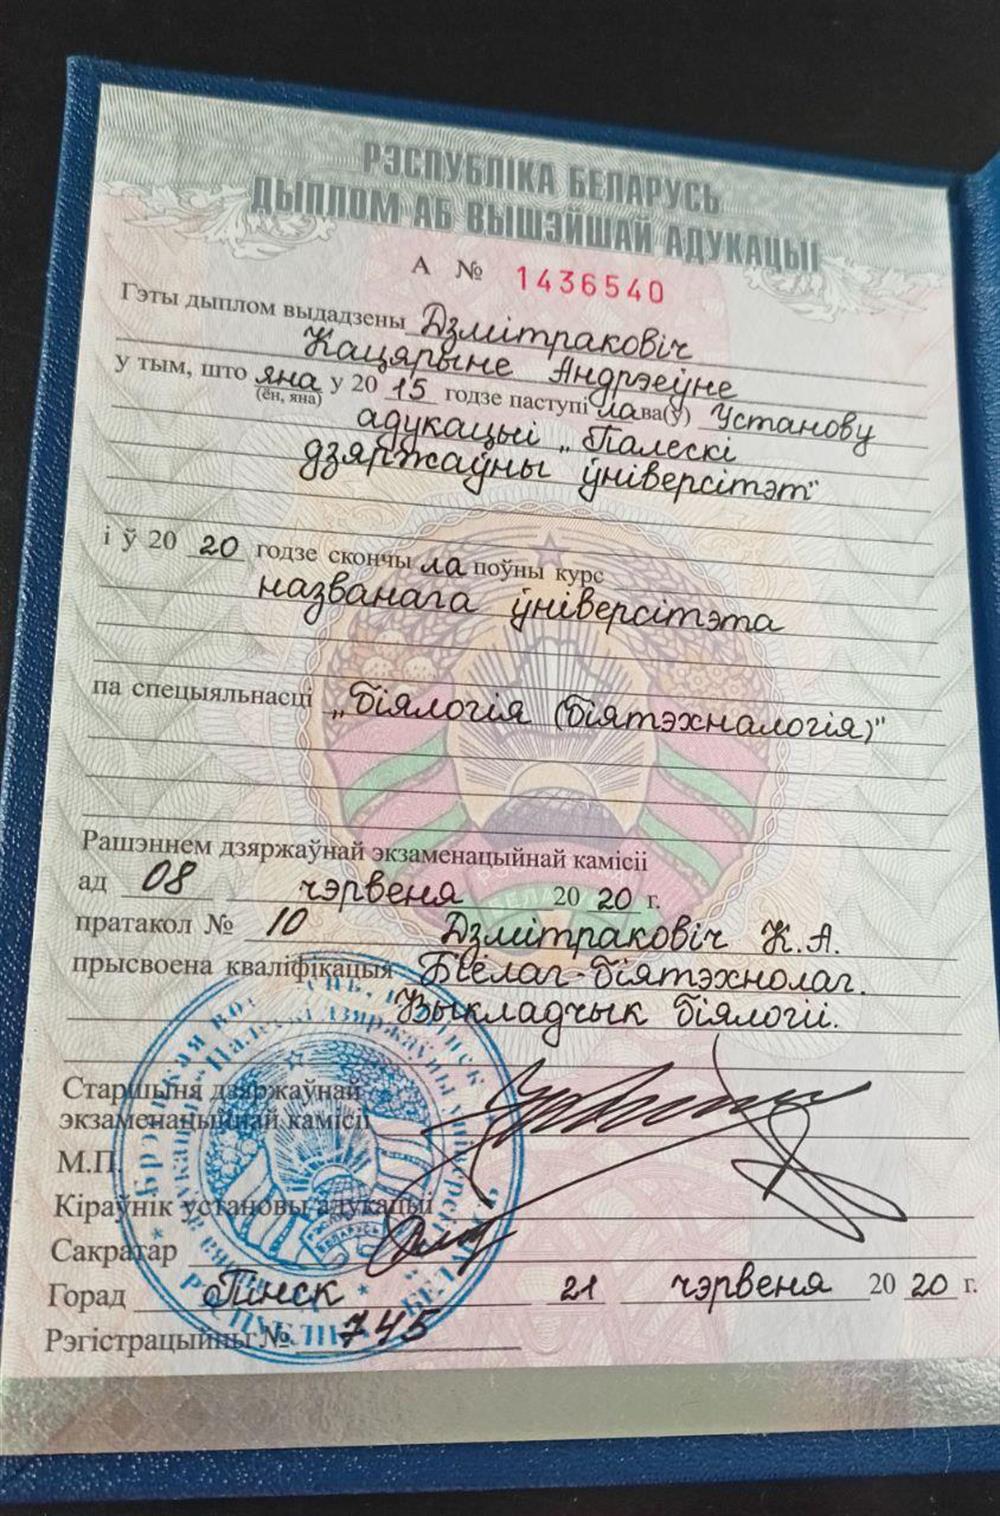 РЭСПУБЛІКА БЕЛАРУСЬ
ДЫПЛОМ АБ ВЫШЭЙШАЙ АДУКАЦЫІ
А № 1436540
Гэты дыплом выдадзены Дзмітраковіч
Кацярыне Андрэеўне
у тым, што яна у 20 15 годзе паступі ла ва(ў) Установу
(ён, яна)
адукацыі „Палескі
дзяржаўны ўніверсітэт"
і ў 20 20 годзе скончы ла поўны курс
названага ўніверсітэта
па спецыяльнасці „Біялогія (біятэхналогія)"
Рашэннем дзяржаўнай экзаменацыйнай камісіі
ад 08 чэрвеня 20 20 г.
пратакол № 10 Дзмітраковіч К.А.
прысвоена кваліфікацыя Біёлаг-біятэхнолаг.
Выкладчык біялогіі.
Старшыня дзяржаўнай
экзаменацыйнай камісіі
М.П.
Кіраўнік установы адукацыі
Сакратар
Горад Пінск 21 чэрвеня 20 20 г.
Рэгістрацыйны № 745